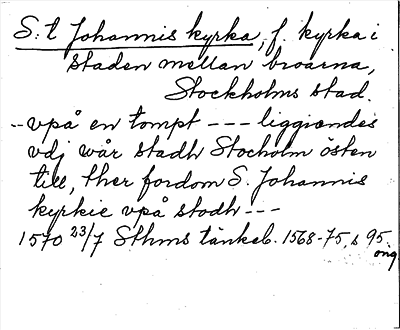 S:t Johannis kyrka, f. kyrka i
staden mellan broarna,
Stockholms stad.
-- vpå en tompt --- liggiandes
vdj wår stadh Stocholm östen
till, ther fordom S. Johannis
kyrkie vpå stodh ---
1570 23/7 Sthms tänkeb. 1568-75, s 95.
orig